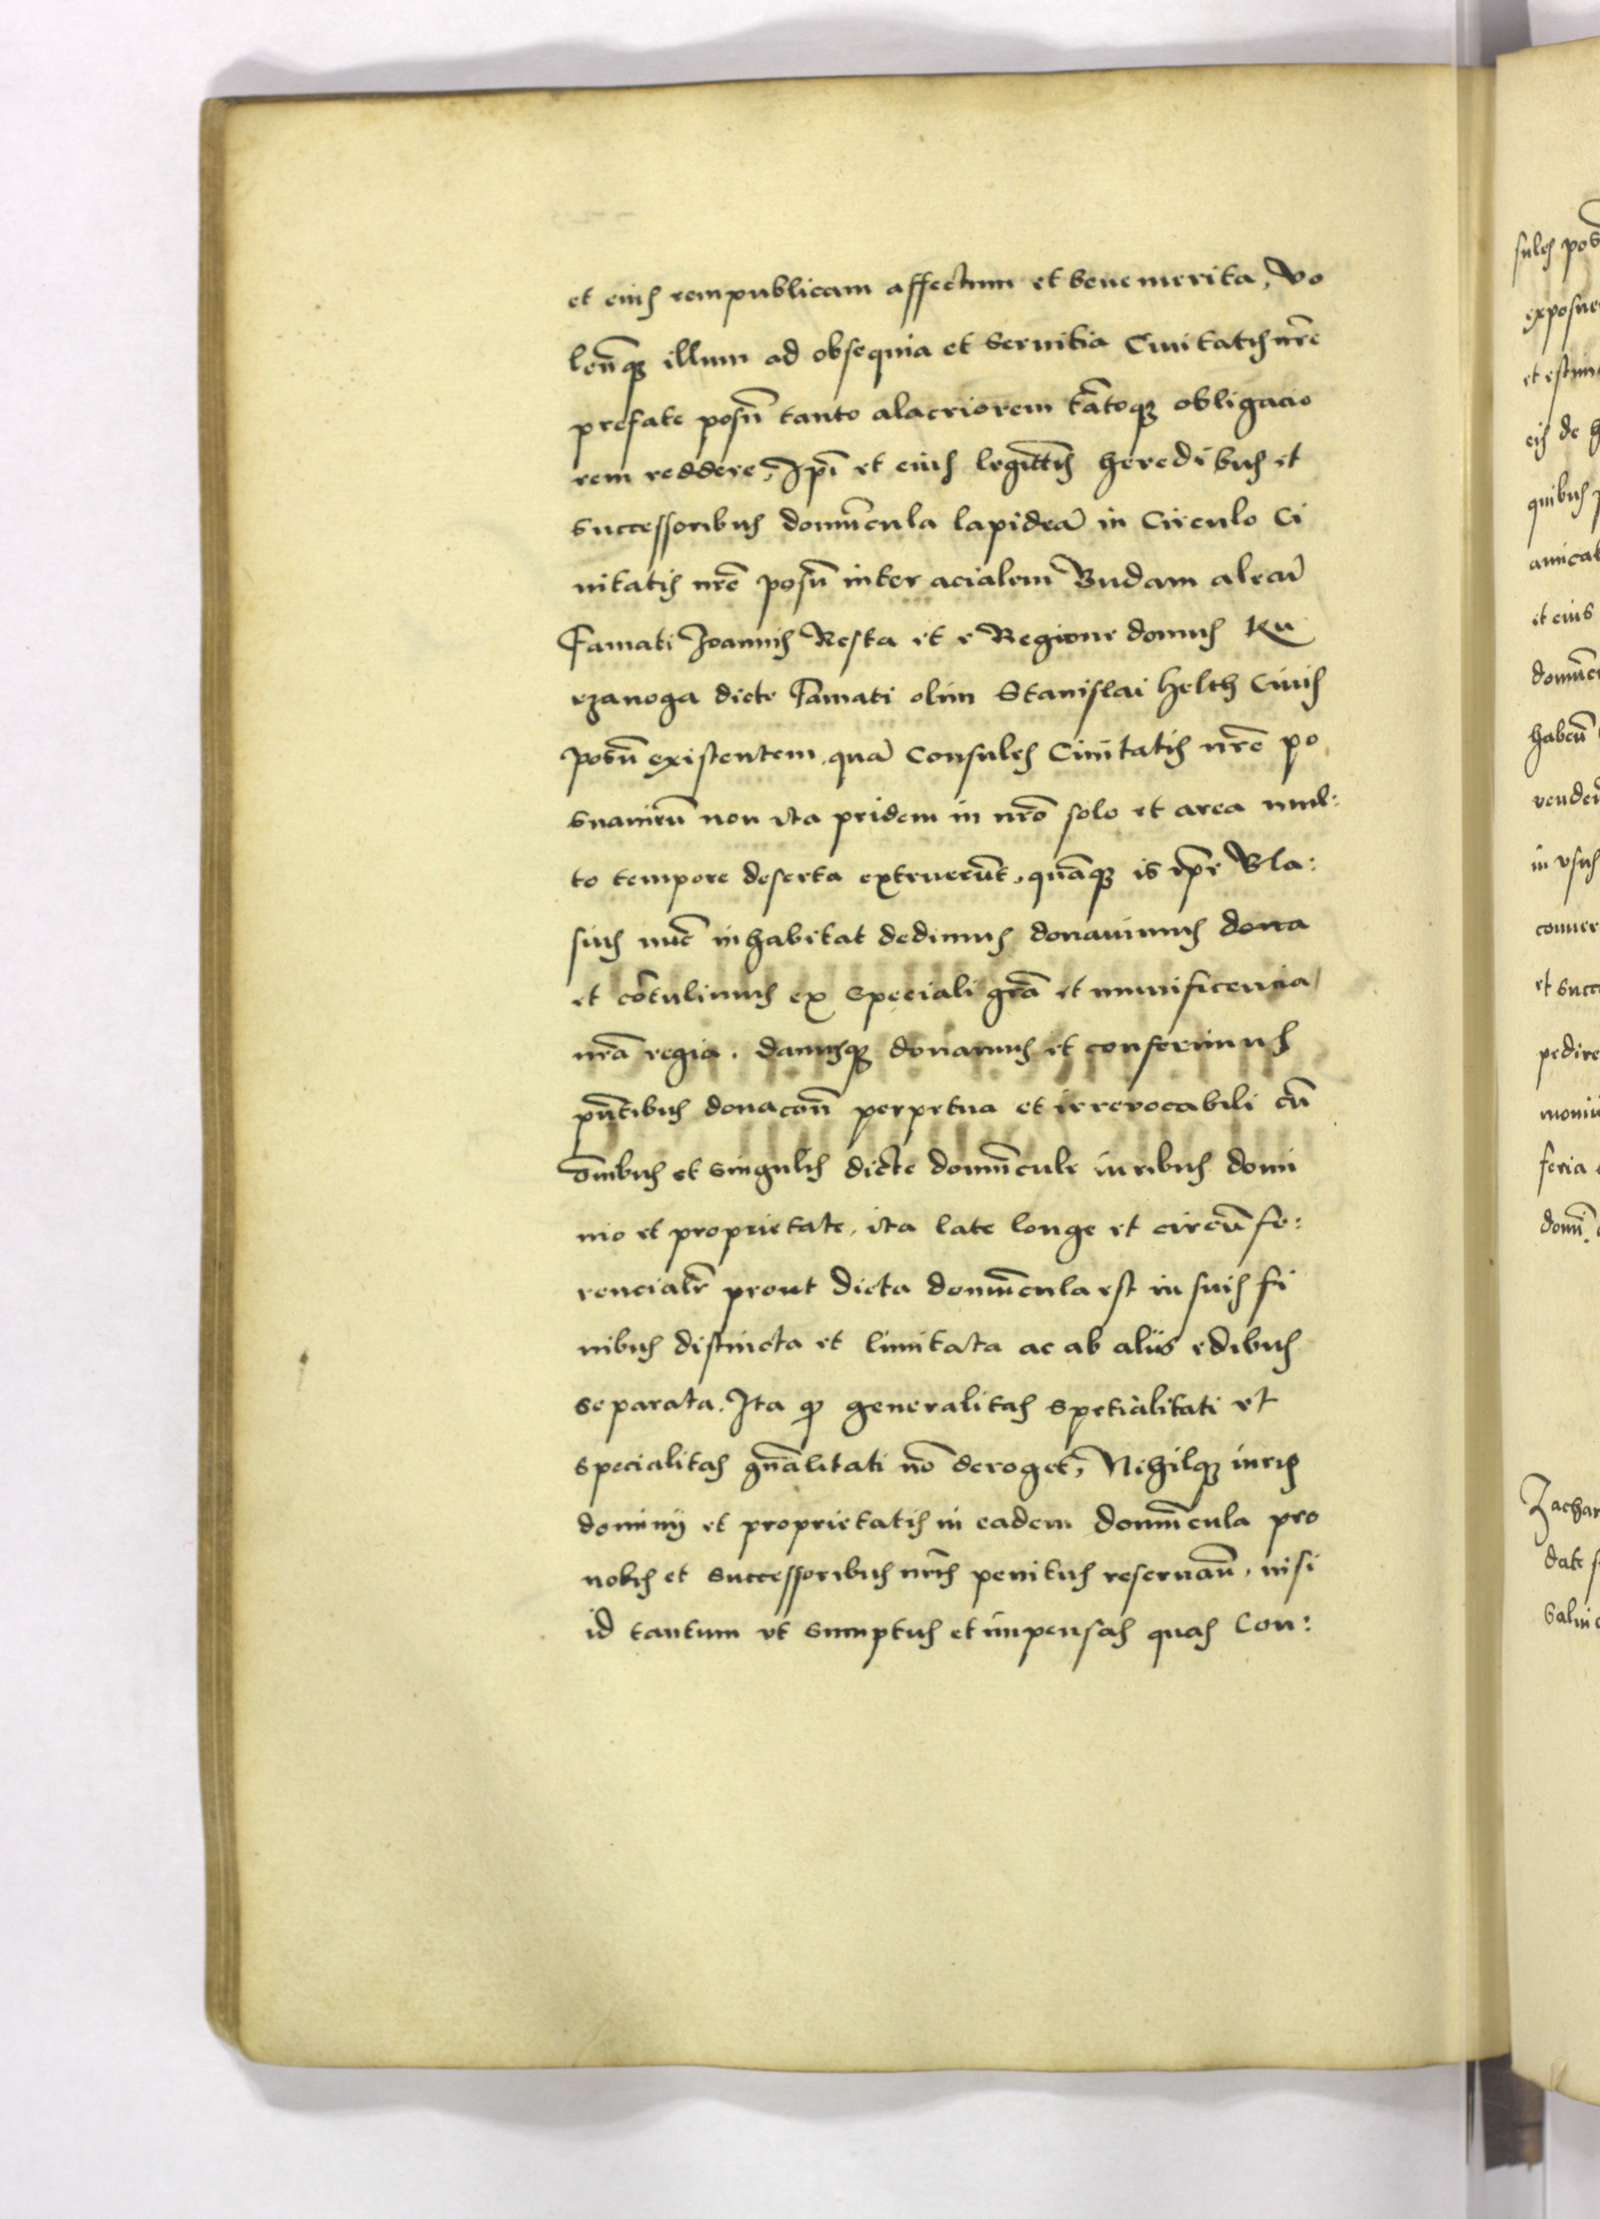 et eius rempublicam affectum et benemerita, Vo
len̄q illum ad obsequia et seruitia Ciuitatis nr̄e
prefate posn̄ tanto alacriorem tātoq obligacio
rem reddere, Ip̄i et eius legittīs heredibus et
successoribus domūcula lapideā in Circulo Ci
uitatis nr̄e posn̄ inter acialem Budam
famati Joannis Resta et e Regione domus Ku
rzanoga dicte famati olim Stanislai helth Ciuis
posn̄ existentem, quā Consules Ciuitatis nr̄e po
snanien̄ non ita pridem in nr̄o solo et area mul:
to tempore deserta extruerūt, quāq is ip̄e Bla:
sius nūc inhabitat dedimus donauimus dona
et cōtulimus ex speciali grā et munificencia
nr̄a regia. damusq donamus et conferimus
pn̄tibus donacōn perpetua et irreuocabili cū
om̄ibus et singulis dicte domūcule iuribus domi
nio et proprietate, ita late longe et circūfe:
rencialr̄ prout dicta domūcula est in suis fi
nibus distincta et limitata ac ab aliis edibus
separata. Ita q generalitas specialitati et
specialitas gn̄alitati nō deroget, Nihilq iuris
dominij et proprietatis in eadem domūcula pro
nobis et successoribus nr̄is penitus reseruan̄, nisi
id tantum vt sumptus et impensas quas Con:
sules
exposue
et estim
eis de
quibus
amicab
et eius
domūc
habeū
vender
in vsus
conuer
et succ
pedire
moniu
feria
domī.
Zachar
date